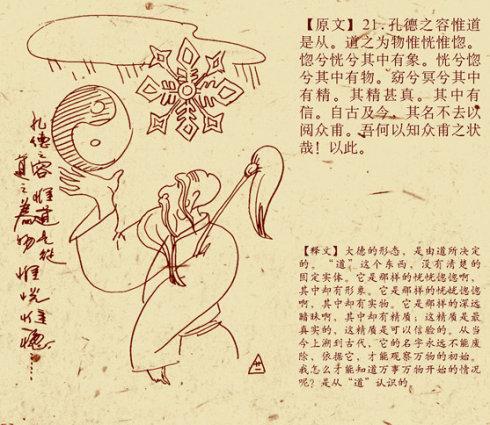 【原文】21.孔德之容惟道
是从。道之为物惟恍惟惚。
惚兮恍兮其中有象。恍兮惚
兮其中有物。窈兮冥兮其中
有精。其精甚真。其中有
信。自古及今，其名不去以
阅众甫。吾何以知众甫之状
哉！以此。
【释文】大德的形态，是由道所决定
的。“道”这个东西，没有清楚的
固定实体。它是那样的恍恍惚惚啊，
其中却有形象。它是那样的恍恍惚惚
啊，其中却有实物。它是那样的深远
暗昧啊，其中却有精质；这精质是最
真实的，这精质是可以信验的。从当
今上溯到古代，它的名字永远不能废
除，依据它，才能观察万物的初始。
我怎么才能知道万事万物开始的情况
呢？是从“道”认识的。
孔德之容惟道是从
道之为物惟恍惟惚